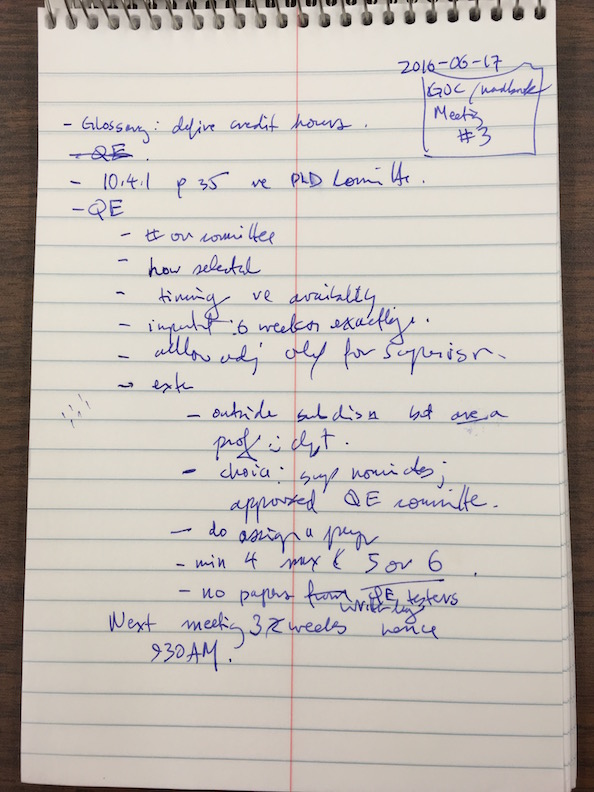 2016-06-17
GOC/handbook
Meeting
#3
- Glossary: define credit hours.
- QE.
- 10.4.1 p 35 re PhD Committe.
- QE
- # on committee
- how selected
- timing re availablty
- 6 weeks or exactly.
- allow adj only for Supervisor.
- exte
- outside subdisn but area
prof in dept.
- choice: sup nominates;
approved QE committe.
- do assign a
- min 4 max 5 or 6.
- no papers from QE testers
written by
Next meeting 3 weeks hence
930AM.